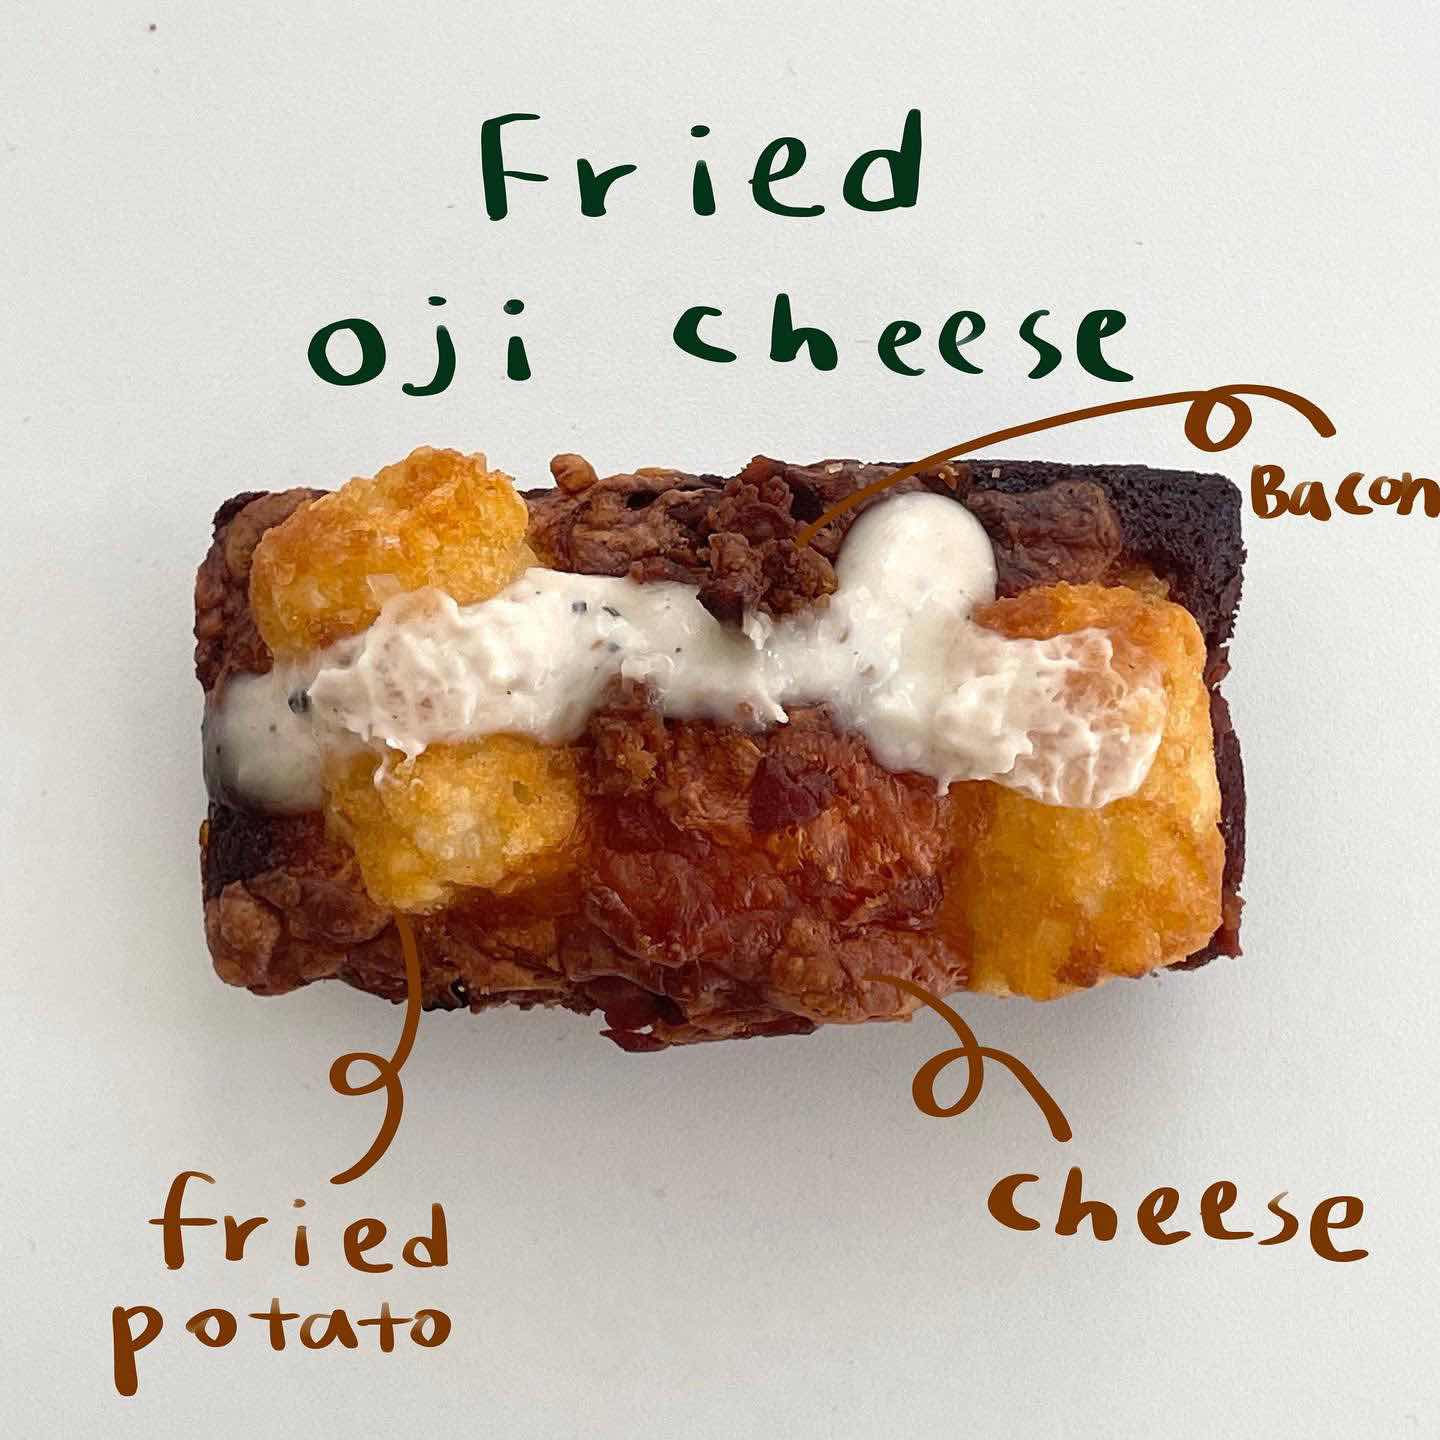 Fried
oji cheese
Bacon
fried
potato
cheese